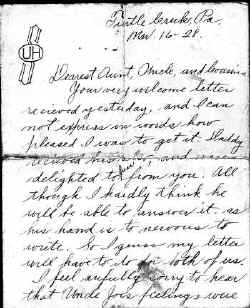 Turtle Creek, Pa.
Mar 16-28.
UH
Dearest Aunt, Uncle, and Cousins
Your very welcome letter
recieved yesterday, and I can
not express in words how
pleased I was to get it. Daddy
recieved his and was
delighted to from you. All
though I hardly think he
will be able to answer it. as
his hand is to nervous to
write. So I guess my letter
will have to do for both of us.
I feel awfully sorry to hear
that Uncle Joe's feeling over